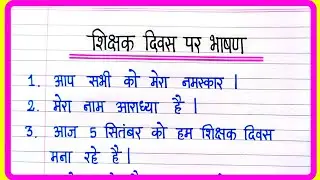 शिक्षक दिवस पर भाषण
1. आप सभी को मेरा नमस्कार |
2. मेरा नाम आराध्या है |
3. आज 5 सितंबर को हम शिक्षक दिवस
मना रहे है |